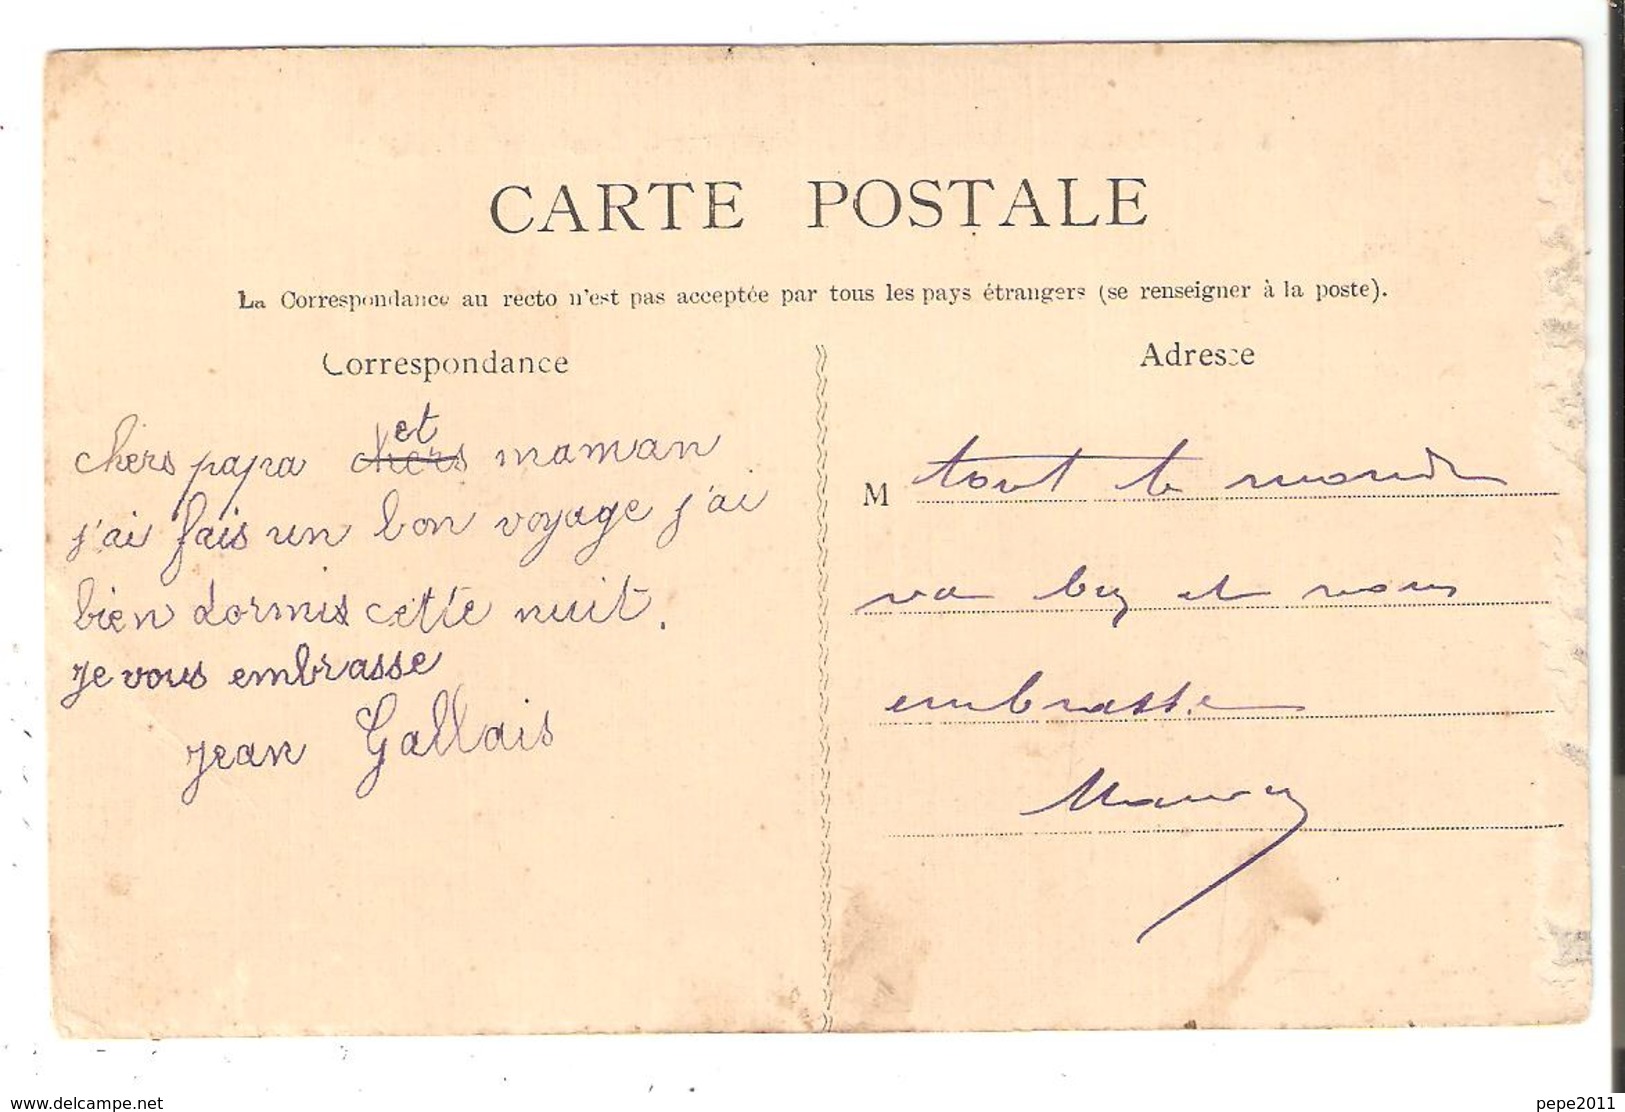 CARTE POSTALE
La Correspondance au recto n'est pas acceptée par tous les pays étrangers (se renseigner à la poste).
Correspondance
chers papa chers et maman
j'ai fais un bon voyage j'ai
bien dormis cette nuit.
je vous embrasse
jean Gallais
Adresse
M tout le monde
va bien et vous
embrasse
www.delcampe.net
pepe2011